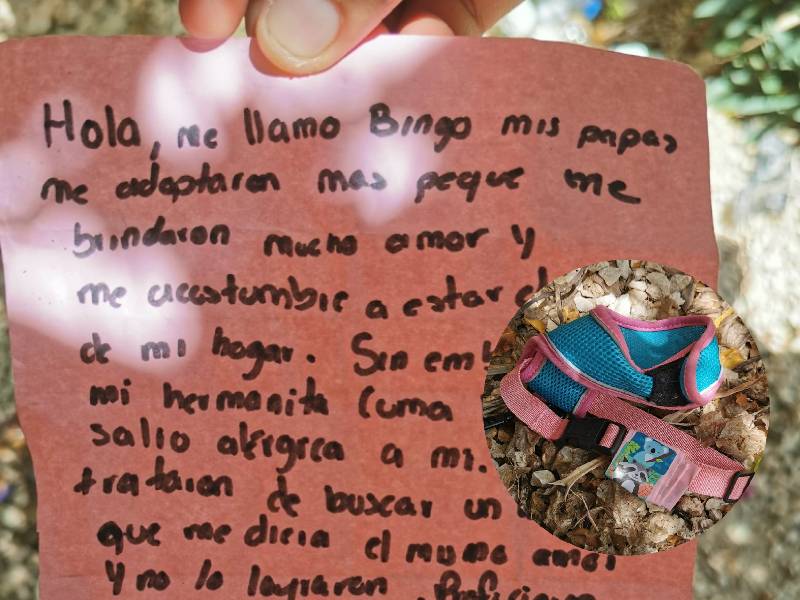 Hola, me llamo Bingo mis papas
me adoptaron mas peque me
brindaron mucho amor y
me acostumbre a estar
de mi hogar. Sin
mi hermanita Cuma
salio alergica a mi.
trataron de buscar un
que me diera el mismo amor
y no lo lograron.